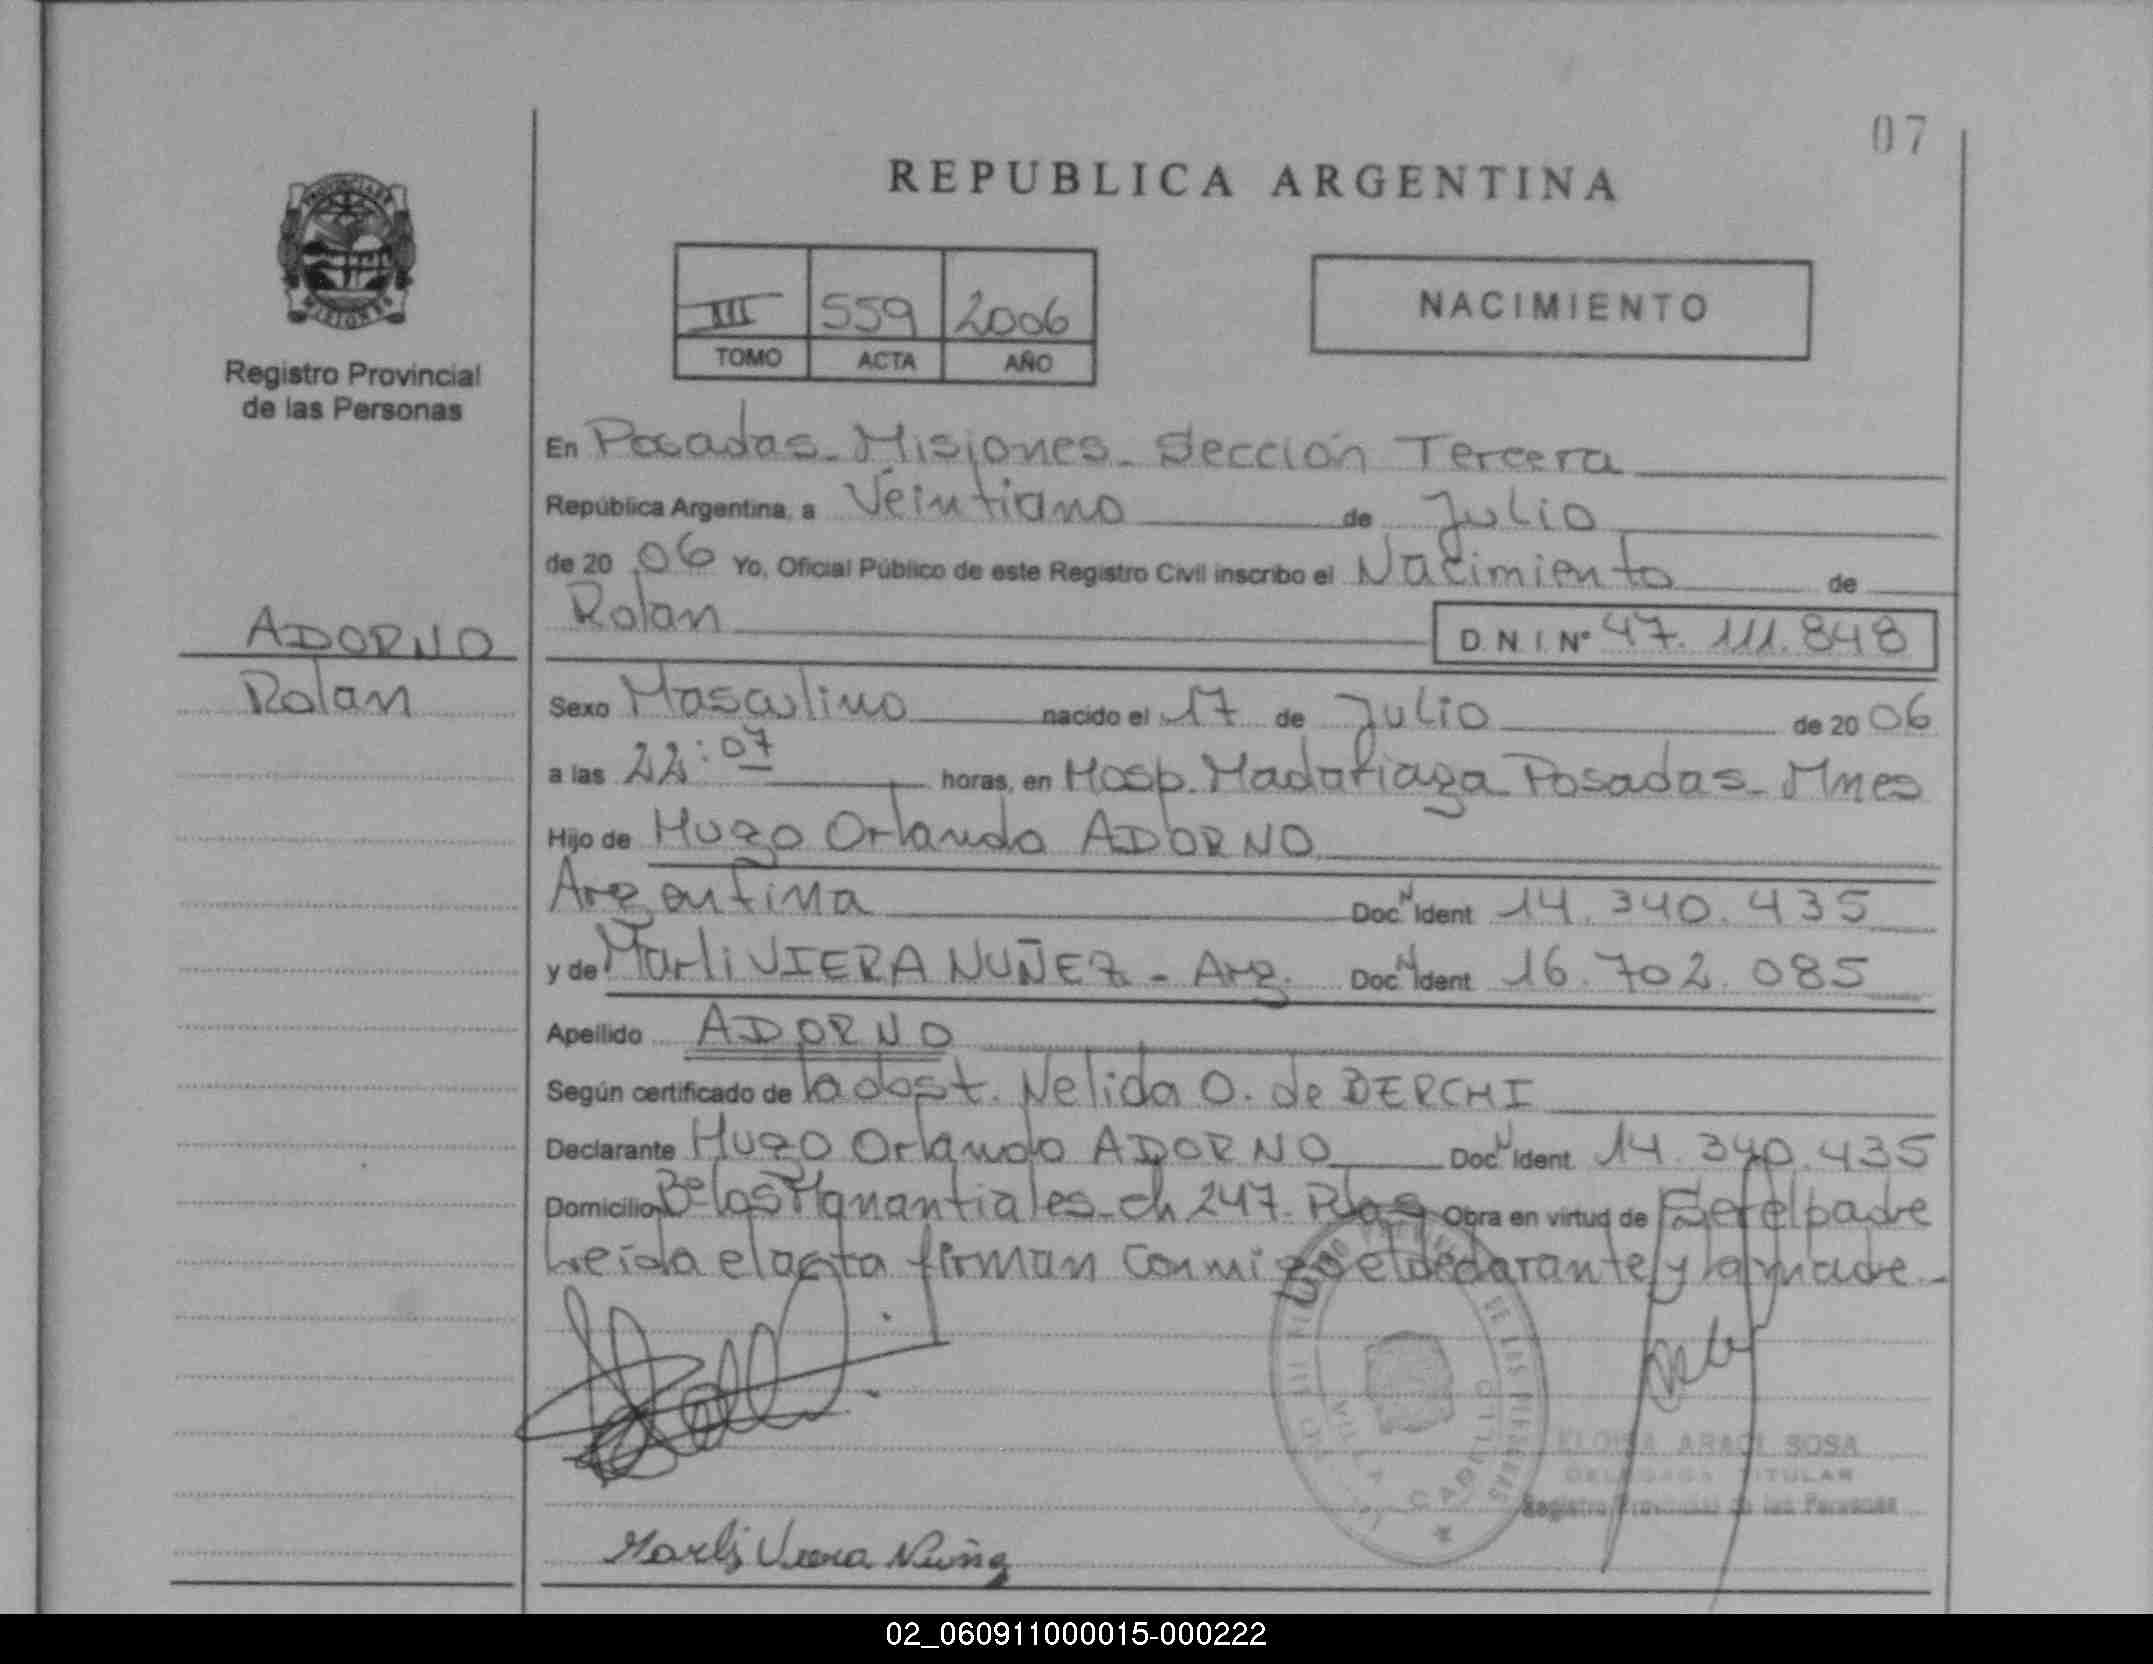 07
REPUBLICA ARGENTINA
PROVINCIA DE
MISIONES
Registro Provincial
de las Personas
III 559 2006
TOMO ACTA AÑO
NACIMIENTO
En Posadas - Misiones - Sección Tercera
República Argentina, a Veintiuno de Julio
de 20 06 Yo, Oficial Público de este Registro Civil inscribo el Nacimiento de
Rolan D.N.I. Nº 47.111.848
ADORNO
Rolan
Sexo Masculino nacido el 17 de Julio de 20 06
a las 22:07 horas, en Hosp. Madariaga Posadas - Mnes
Hijo de Hugo Orlando ADORNO
Argentina Doc. N Ident 14.340.435
y de Marli VIERA NUÑEZ - Arg. Doc. N Ident 16.702.085
Apellido ADORNO
Según certificado de la obst. Nelida O. de BERCHI
Declarante Hugo Orlando ADORNO Doc. N Ident 14.340.435
Domicilio Bº los Manantiales - ch 247. Pdas Obra en virtud de Ser el padre
Leída el acta firman conmigo el declarante y la madre -
ELOISA ARACI SOSA
DELEGADA TITULAR
Registro Provincial de las Personas
Marli Viera Nuñez
02_060911000015-000222